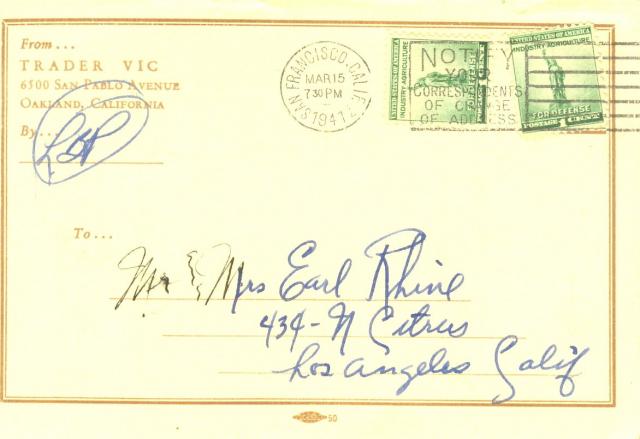 From...
TRADER VIC
6500 SAN PABLO AVENUE
OAKLAND, CALIFORNIA
By...
To...
SAN FRANCISCO, CALIF.
MAR 15
7 30 PM
1941
NOTIFY
YOUR
CORRESPONDENTS
OF CHANGE
OF ADDRESS
UNITED STATES OF AMERICA
INDUSTRY AGRICULTURE
FOR DEFENSE
UNITED STATES OF AMERICA
INDUSTRY AGRICULTURE
FOR DEFENSE
POSTAGE 1 CENT
Mr & Mrs Earl Rhine
434-N Citrus
Los Angeles Calif
50